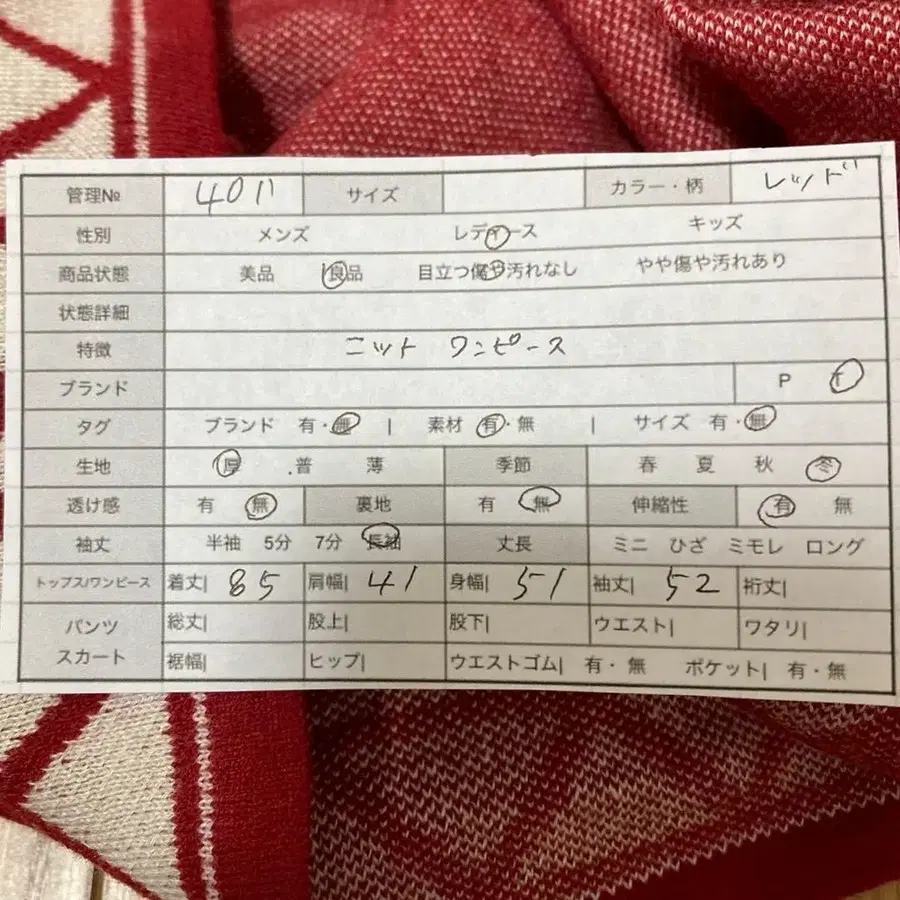 管理№ 4011 サイズ カラー・柄 レッド
性別 メンズ レディース キッズ
商品状態 美品 良品 目立つ傷や汚れなし やや傷や汚れあり
状態詳細
特徴 ニット ワンピース
ブランド P T
タグ ブランド 有・無 | 素材 有・無 | サイズ 有・無
生地 厚 .普 薄 季節 春 夏 秋 冬
透け感 有 無 裏地 有 無 伸縮性 有 無
袖丈 半袖 5分 7分 長袖 丈長 ミニ ひざ ミモレ ロング
トップス/ワンピース 着丈| 85 肩幅| 41 身幅| 51 袖丈| 52 裄丈|
パンツ 総丈| 股上| 股下| ウエスト| ワタリ|
スカート 裾幅| ヒップ| ウエストゴム| 有・無 ポケット| 有・無